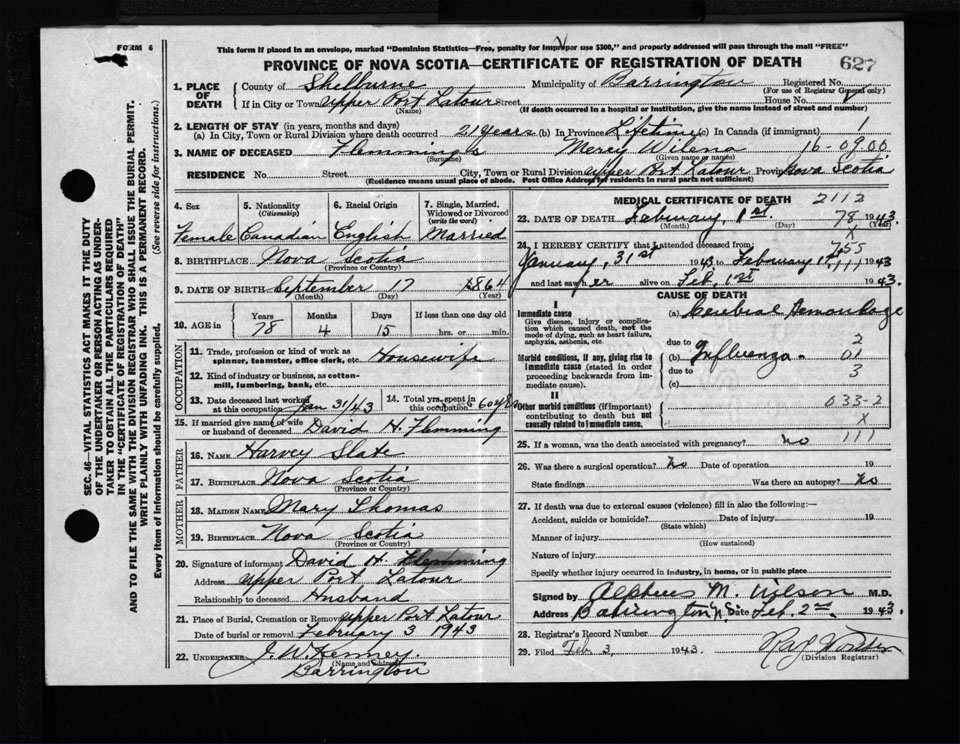 FORM 6
This form if placed in an envelope, marked "Dominion Statistics—Free, penalty for improper use $300," and properly addressed will pass through the mail "FREE"
PROVINCE OF NOVA SCOTIA—CERTIFICATE OF REGISTRATION OF DEATH
627
1. PLACE OF DEATH
County of Shelburne Municipality of Barrington Registered No.
(For use of Registrar General only)
If in City or Town Upper Port Latour Street House No.
(Name) (If death occurred in a hospital or institution, give the name instead of street and number)
2. LENGTH OF STAY (in years, months and days)
(a) In City, Town or Rural Division where death occurred 21 years (b) In Province Lifetime (c) In Canada (if immigrant) 1
3. NAME OF DECEASED Flemming Mercy Wilena 16-0900
(Surname) (Given name or names)
RESIDENCE No. Street City, Town or Rural Division Upper Port Latour Province Nova Scotia
(Residence means usual place of abode. Post Office Address of residents in rural parts not sufficient)
4. Sex
Female
5. Nationality
(Citizenship)
Canadian
6. Racial Origin
English
7. Single, Married, Widowed or Divorced
(write the word)
Married
8. BIRTHPLACE Nova Scotia
(Province or Country)
9. DATE OF BIRTH September 17 1864
(Month) (Day) (Year)
10. AGE in
Years Months Days If less than one day old
78 4 15 hrs. or min.
OCCUPATION
11. Trade, profession or kind of work as spinner, teamster, office clerk, etc. Housewife
12. Kind of industry or business, as cotton-mill, lumbering, bank, etc.
13. Date deceased last worked at this occupation Jan 31/43
14. Total yrs. spent in this occupation 60 yrs
15. If married give name of wife or husband of deceased David H. Flemming
FATHER
16. NAME Harvey Slate
17. BIRTHPLACE Nova Scotia
(Province or Country)
MOTHER
18. MAIDEN NAME Mary Thomas
19. BIRTHPLACE Nova Scotia
(Province or Country)
20. Signature of informant David H. Flemming
Address Upper Port Latour
Relationship to deceased Husband
21. Place of Burial, Cremation or Removal Upper Port Latour
Date of burial or removal February 3 1943
22. UNDERTAKER J. W. Kenney
(Name and address)
Barrington
MEDICAL CERTIFICATE OF DEATH 2112
23. DATE OF DEATH February, 1st. 1943
(Month) (Day) (Year)
78
X
24. I HEREBY CERTIFY that I attended deceased from:
755
January, 31st 1943 to February 1st 1943
and last saw her alive on Feb, 1st 1943.
CAUSE OF DEATH
I
Immediate cause
Give disease, injury or complication which caused death, not the mode of dying, such as heart failure, asphyxia, asthenia, etc.
(a) Cerebral Hemorrhage
due to 2
Morbid conditions, if any, giving rise to immediate cause (stated in order proceeding backwards from immediate cause).
(b) Influenza. 01
due to 3
(c)
II
Other morbid conditions (if important) contributing to death but not causally related to immediate cause.
033-2
X
25. If a woman, was the death associated with pregnancy? no 111
26. Was there a surgical operation? No Date of operation 19
State findings Was there an autopsy? No
27. If death was due to external causes (violence) fill in also the following:—
Accident, suicide or homicide? Date of injury 19
(State which)
Manner of injury
(How sustained)
Nature of injury
Specify whether injury occurred in industry, in home, or in public place
Signed by Alpheus M. Wilson M.D.
Address Barrington N.S. Date Feb. 2nd. 1943.
28. Registrar's Record Number
29. Filed Feb 3, 1943.
(Division Registrar)
SEC. 46—VITAL STATISTICS ACT MAKES IT THE DUTY
OF THE UNDERTAKER OR PERSON ACTING AS UNDER-
TAKER TO OBTAIN ALL THE PARTICULARS REQUIRED
IN THE "CERTIFICATE OF REGISTRATION OF DEATH"
AND TO FILE THE SAME WITH THE DIVISION REGISTRAR WHO SHALL ISSUE THE BURIAL PERMIT.
WRITE PLAINLY WITH UNFADING INK. THIS IS A PERMANENT RECORD.
Every item of information should be carefully supplied. (See reverse side for instructions.)